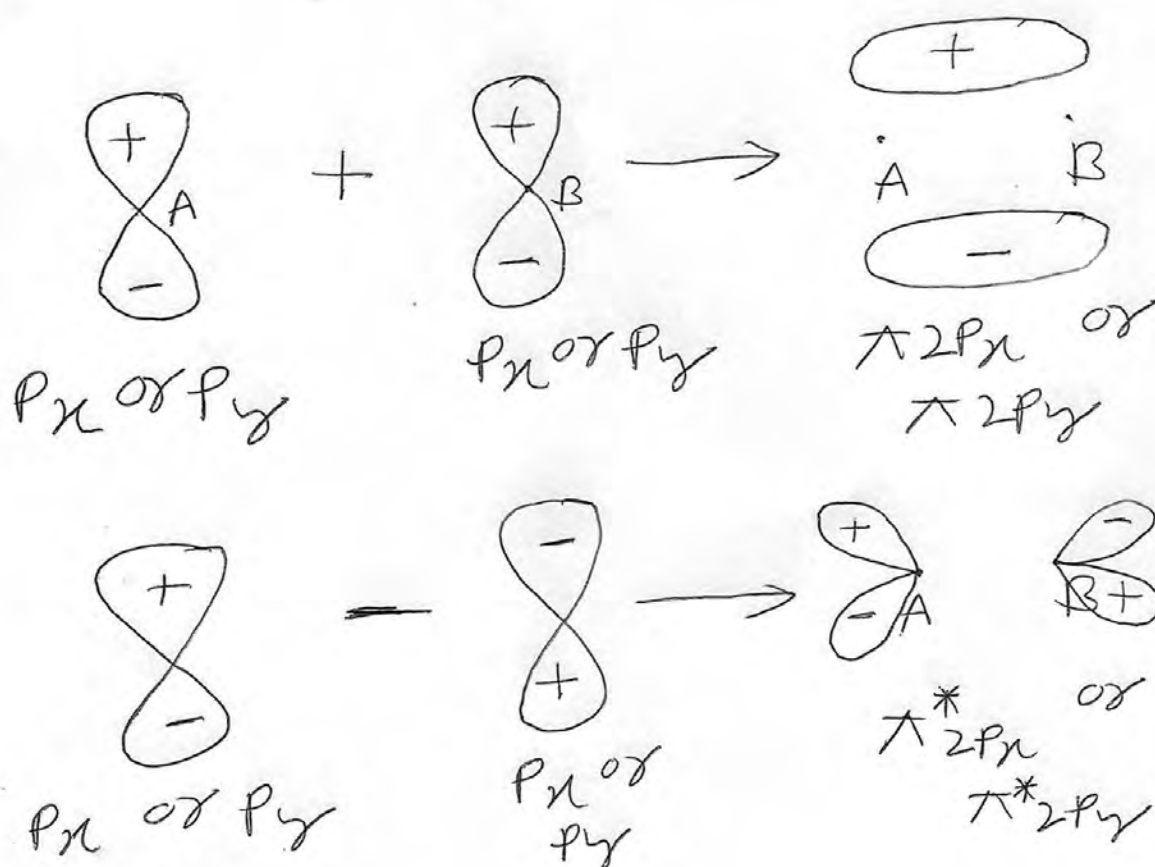 + + + + →
A B A B
- - -
Px or Py Px or Py π2Px or
π2Py
+ - - → + -
- + - A B +
Px or Py Px or
Py
π*2Px or
π*2Py